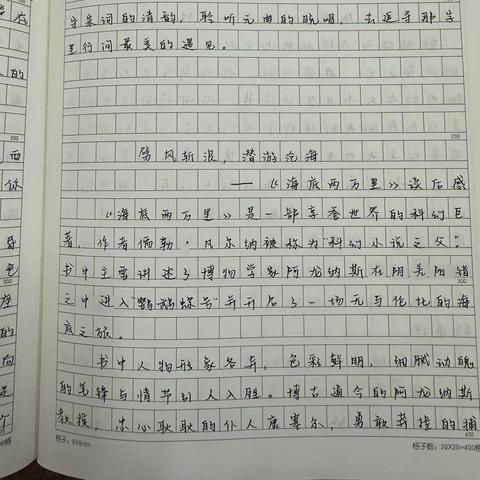 寻宋词的清韵，聆听元曲的晚唱，去追寻那字
里行间最美的遇见。
200
200
劈风斩浪，潜游沧海
——《海底两万里》读后感
《海底两万里》是一部享誉世界的科幻巨
著，作者儒勒·凡尔纳被称为“科幻小说之父”。
书中主要讲述了博物学家阿龙纳斯在阴差阳错
300
300
之中进入“鹦鹉螺号”并开启了一场无与伦比的海
底之旅。
书中人物形象各异，色彩鲜明，细腻动魄
的笔锋与情节引人入胜。博古通今的阿龙纳斯
教授，忠心耿耿的仆人康塞尔，勇敢莽撞的捕
400
格子：8X8mm
格子数：20X20=400格